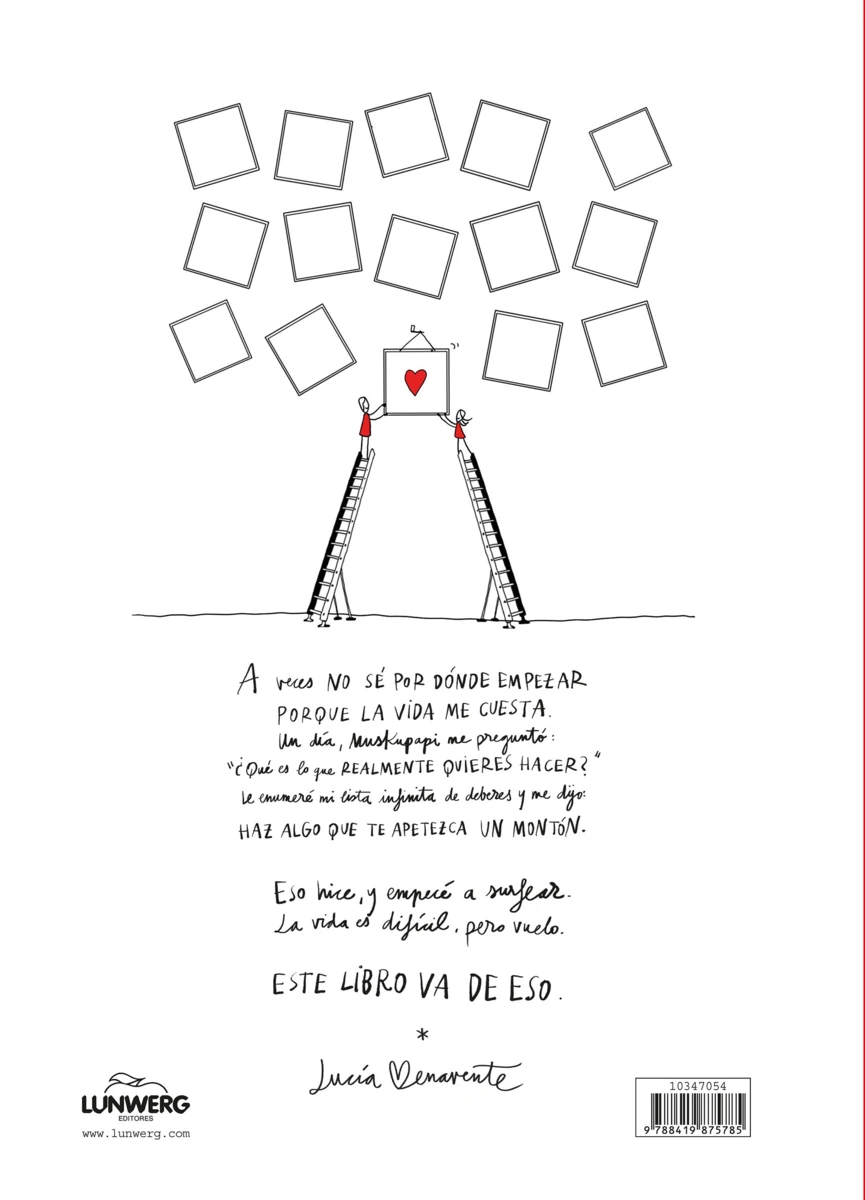 A veces NO SÉ POR DÓNDE EMPEZAR
PORQUE LA VIDA ME CUESTA.
Un día, Muskupapi me preguntó:
"¿Qué es lo que REALMENTE QUIERES HACER?"
Le enumeré mi lista infinita de deberes y me dijo:
HAZ ALGO QUE TE APETEZCA UN MONTÓN.
Eso hice, y empecé a surfear.
La vida es difícil, pero vuelo.
ESTE LIBRO VA DE ESO.
*
Lucía Benavente
LUNWERG
EDITORES
www.lunwerg.com
10347054
9 788419 875785